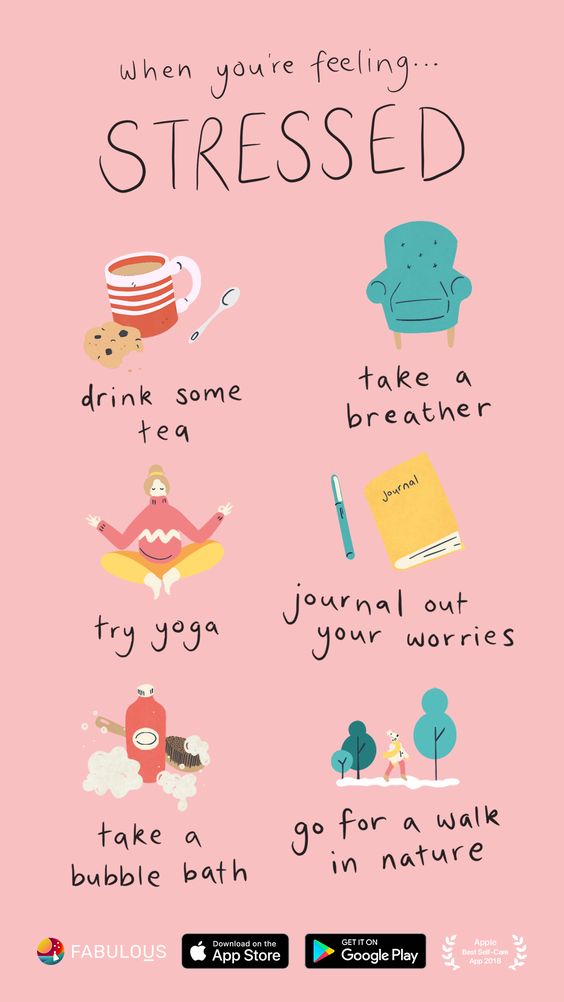 when you're feeling...
STRESSED
drink some
tea
take a
breather
try yoga
Journal
journal out
your worries
take a
bubble bath
go for a walk
in nature
FABULOUS
Download on the
App Store
GET IT ON
Google Play
Apple
Best Self-Care
App 2018